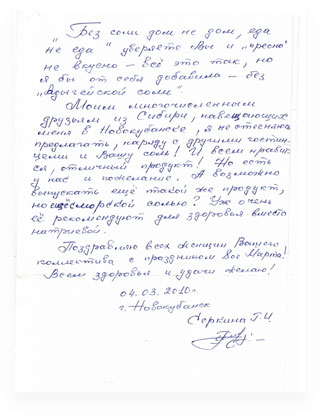 „Без соли дом не дом, еда
не еда" уверяете Вы и „пресно"
не вкусно – всё это так, но
я бы от себя добавила – без
„Адыгейской соли".
Моим многочисленным
друзьям из Сибири, навещающих
меня в Новокубанске, я не стесняюсь
предлагать, наряду с другими гостин-
цами и Вашу соль! И всем нравит-
ся, отличный продукт! Но есть
у нас и пожелание. А возможно
выпускать ещё такой же продукт,
но с морской солью? Уж очень
её рекомендуют для здоровья вместо
натриевой.
Поздравляю всех женщин Вашего
коллектива с праздником 8ое Марта!
Всем здоровья и удачи желаю!
04.03.2010г.
г. Новокубанск
Серкина Т.И.